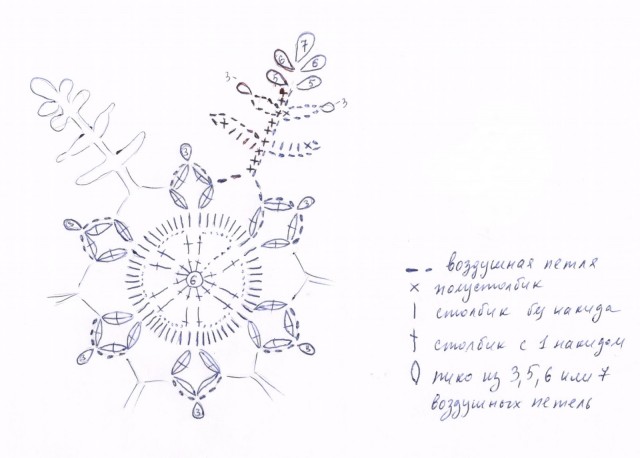 7
6 6
5 5
3
3
3
3
3
6
3
3
3
воздушная петля
полустолбик
столбик без накида
столбик с 1 накидом
пико из 3, 5, 6 или 7
воздушных петель